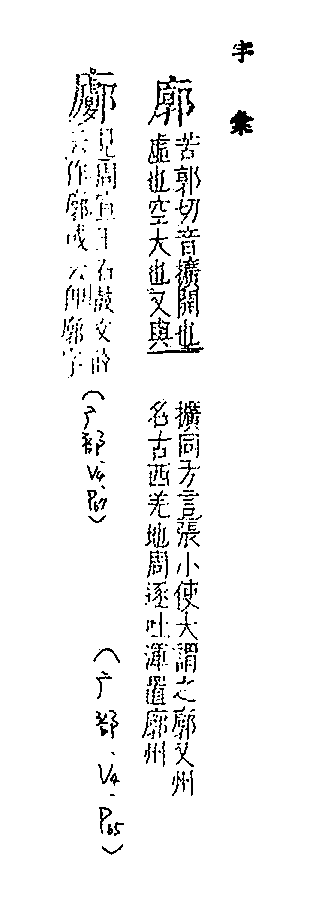 字彙
廓
苦郭切音擴開也
虛也空大也又與
擴同方言張小使大謂之廓又州
名古西羌地周逐吐渾置廓州
(广部.V4.P65)
見周宣王石鼓文
作廓或云即廓字
(广部.V4.P67)